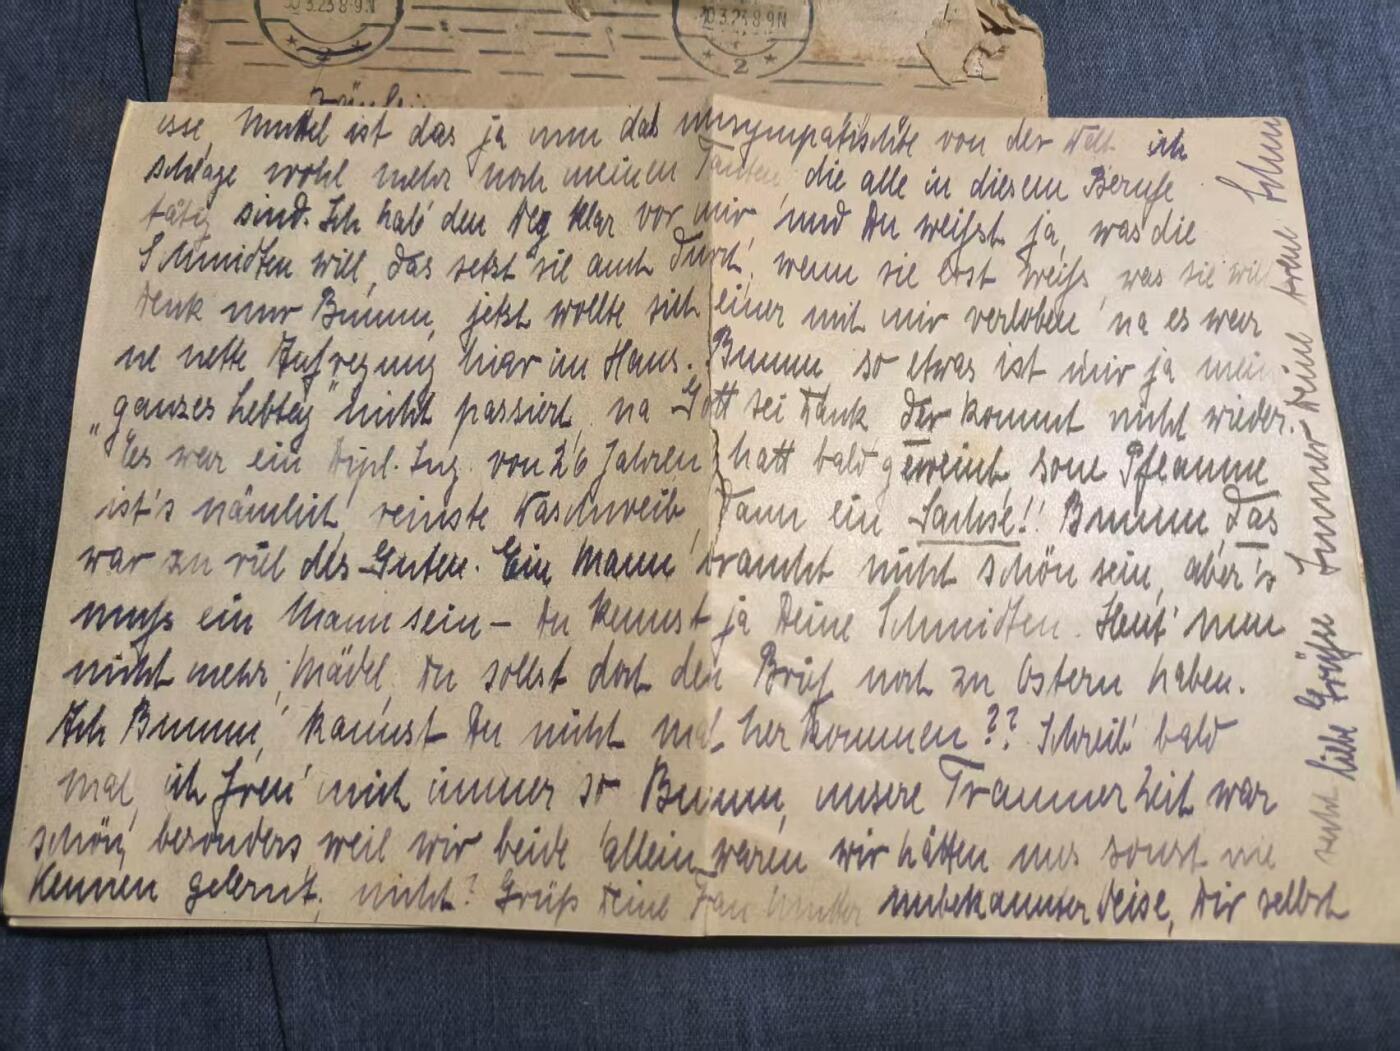 30.3.23 8-9N
30.3.23 8-9N
2
2
Fräulein
esse, Mittel ist das ja nun das unsympatischste von der Welt ich
schlage wohl mehr nach meinen Tanten, die alle in diesem Berufe
tätig sind. Ich hab' den Weg klar vor mir und Du weißt ja, was die
Schmidten will, das setzt sie auch durch, wenn sie erst weiß, was sie will
Denk nur Bumm, jetzt wollte sich einer mit mir verloben na es war
ne nette Aufregung hier im Haus. Bumm so etwas ist mir ja mein
ganzes Lebtag nicht passiert, na Gott sei Dank der kommt nicht wieder.
Es war ein Dipl. Ing. von 26 Jahren, hatt bald geweint, sone Pflaume
ist's nämlich, reinste Waschweib, dann ein Sachse!! Bumm, das
war zu viel des Guten. Ein Mann braucht nicht schön sein, aber 's
muß ein Mann sein – Du kennst ja Deine Schmidten. Heut' nun
nicht mehr, Mädel, Du sollst doch den Brief noch zu Ostern haben.
Ach Bumm, kannst Du nicht mal her kommen?? Schreib' bald
mal, ich freu' mich immer so Bumm, unsere Trauner Zeit war
schön, besonders, weil wir beide allein waren wir hätten uns sonst nie
kennen gelernt, nicht? Grüß Deine Frau Mutter unbekannter Weise, Dir selbst
recht liebe Grüße Immer Deine treue Schm